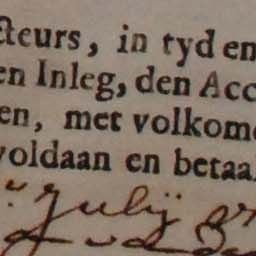 cteurs, in tyd en
en Inleg, den Acc
en, met volkome
voldaan en betaal
July